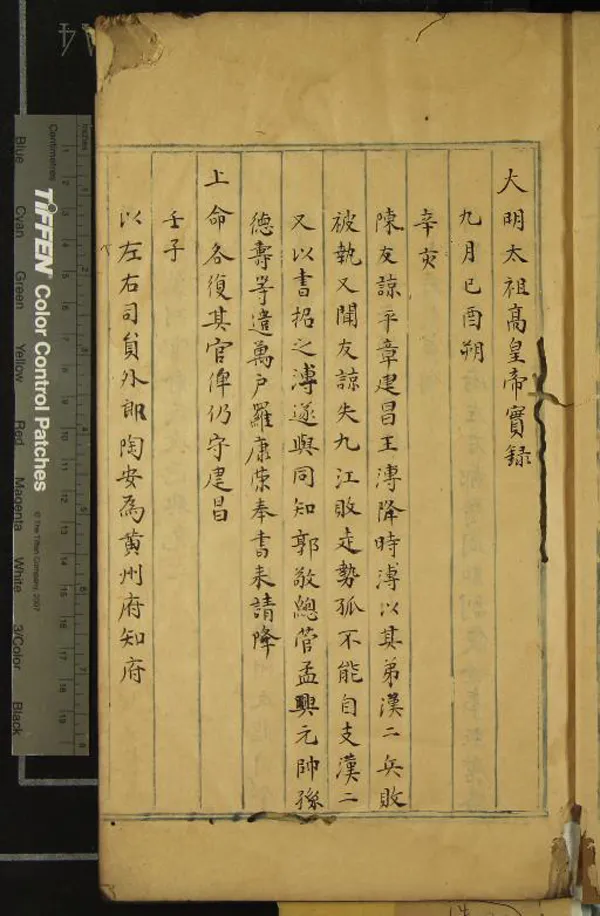 大明太祖高皇帝實録
九月己酉朔
辛亥
陳友諒平章建昌王溥降時溥以其弟漢二兵敗
被執又聞友諒失九江敗走勢孤不能自支漢二
又以書招之溥遂與同知郭敬總管孟興元帥孫
德壽等遣萬户羅康荣奉書来請降
上命各復其官俾仍守建昌
壬子
以左右司員外郎陶安爲黄州府知府
Inches
Centimetres
TIFFEN Color Control Patches
© The Tiffen Company, 2007
Blue Cyan Green Yellow Red Magenta White 3/Color Black